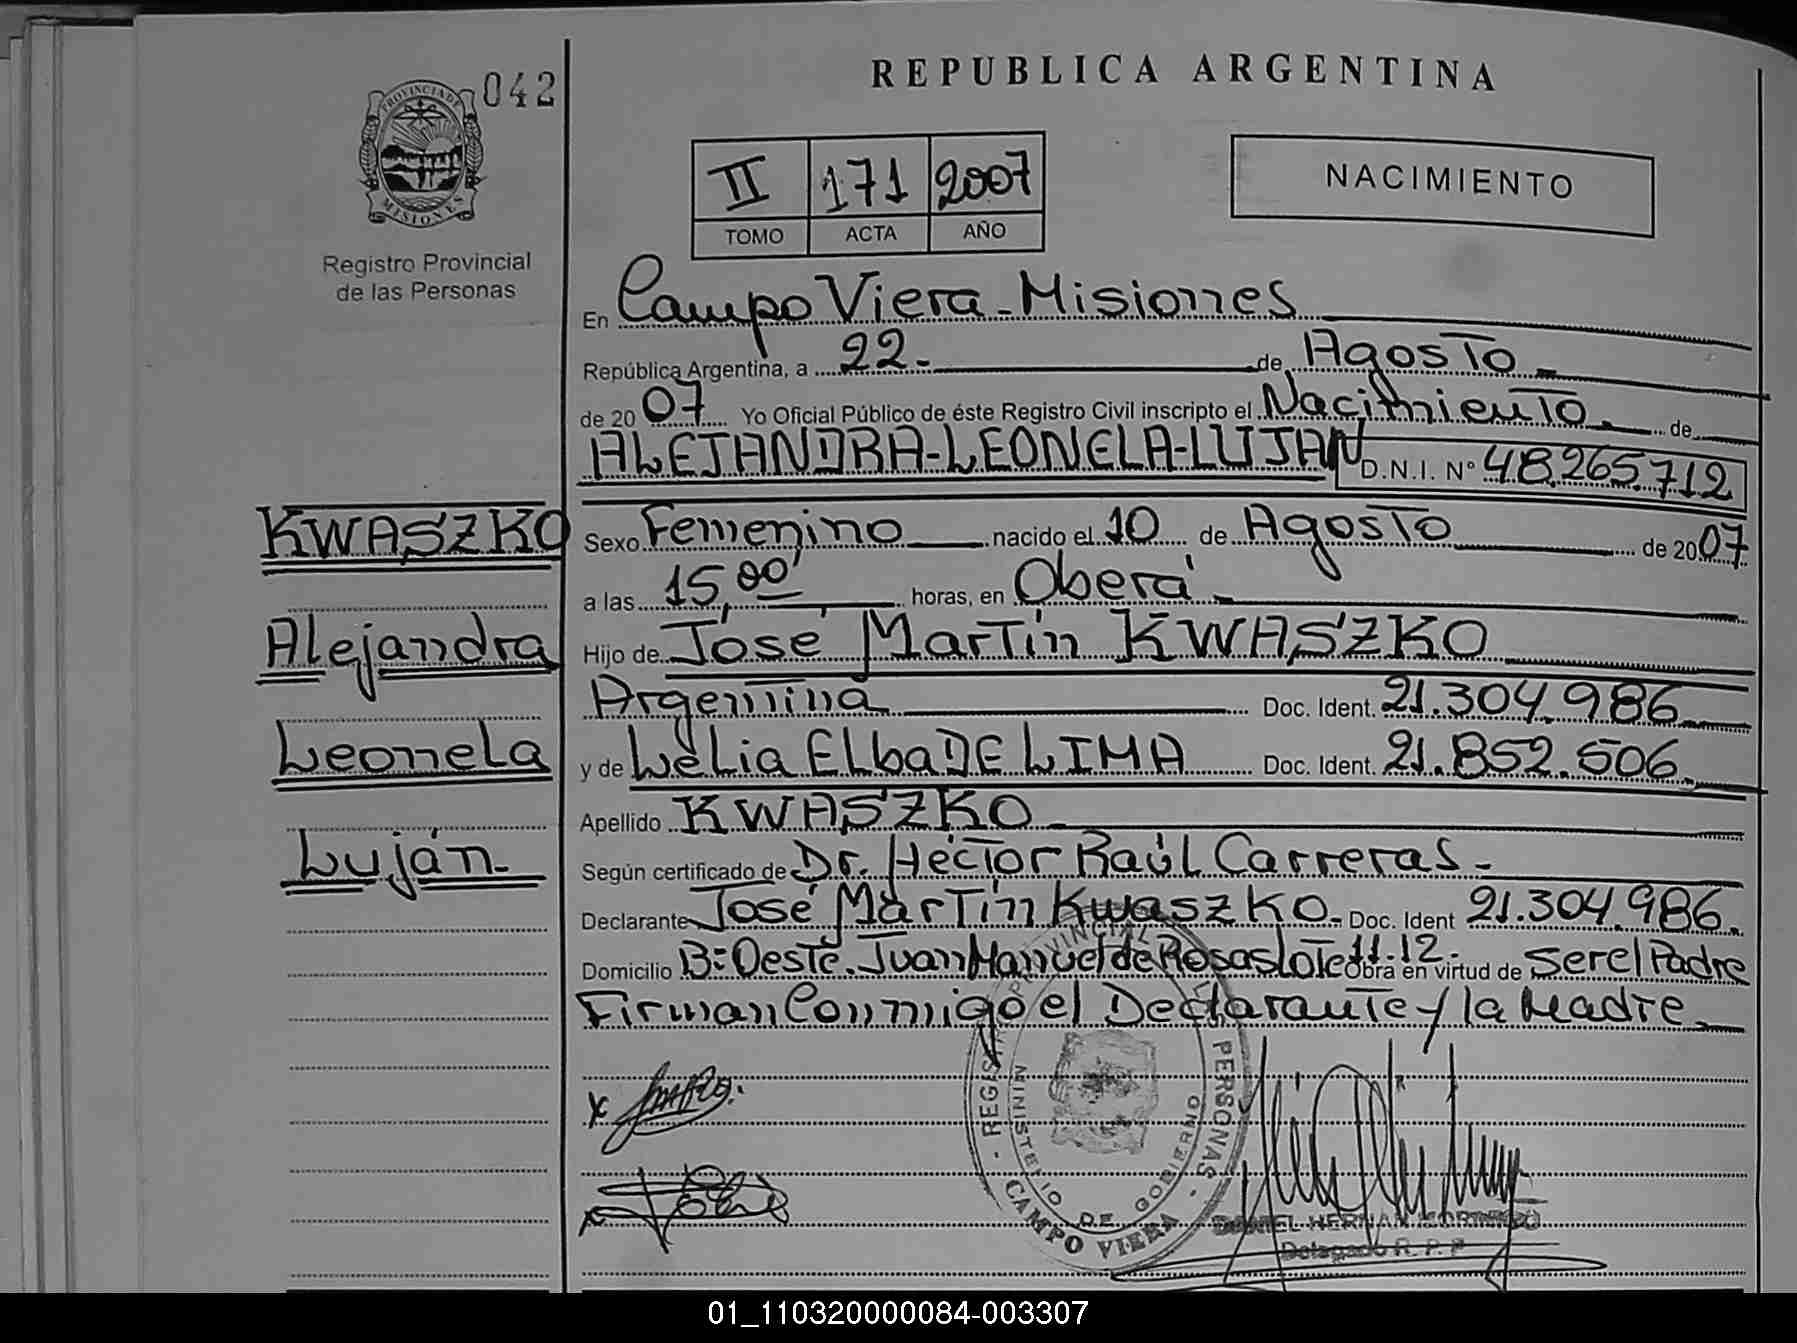 042
PROVINCIA DE
MISIONES
Registro Provincial
de las Personas
REPUBLICA ARGENTINA
II 171 2007
TOMO ACTA AÑO
NACIMIENTO
En Campo Viera - Misiones
República Argentina, a 22.- de Agosto
de 2007 Yo Oficial Público de éste Registro Civil inscripto el Nacimiento de
ALEJANDRA-LEONELA-LUJAN D.N.I. N° 48.265.712
KWASZKO
Sexo Femenino nacido el 10 de Agosto de 2007
a las 15,00 horas, en Oberá
Alejandra
Hijo de José Martín KWASZKO
Argentina Doc. Ident. 21.304.986
Leonela
y de Lelia Elba DE LIMA Doc. Ident. 21.852.506
Apellido KWASZKO
Luján.-
Según certificado de Dr. Héctor Raúl Carreras -
Declarante José Martín Kwaszko. Doc. Ident 21.304.986.
Domicilio B: Oeste. Juan Manuel de Rosas Lote 11-12. Obra en virtud de ser el Padre
Firman Conmigo el Declarante y la Madre
REGIS PROVINCIAL PERSONAS
MINISTERIO DE GOBIERNO
- CAMPO VIERA -
DANIEL HERNAN
Delegado R. P. P
01_110320000084-003307